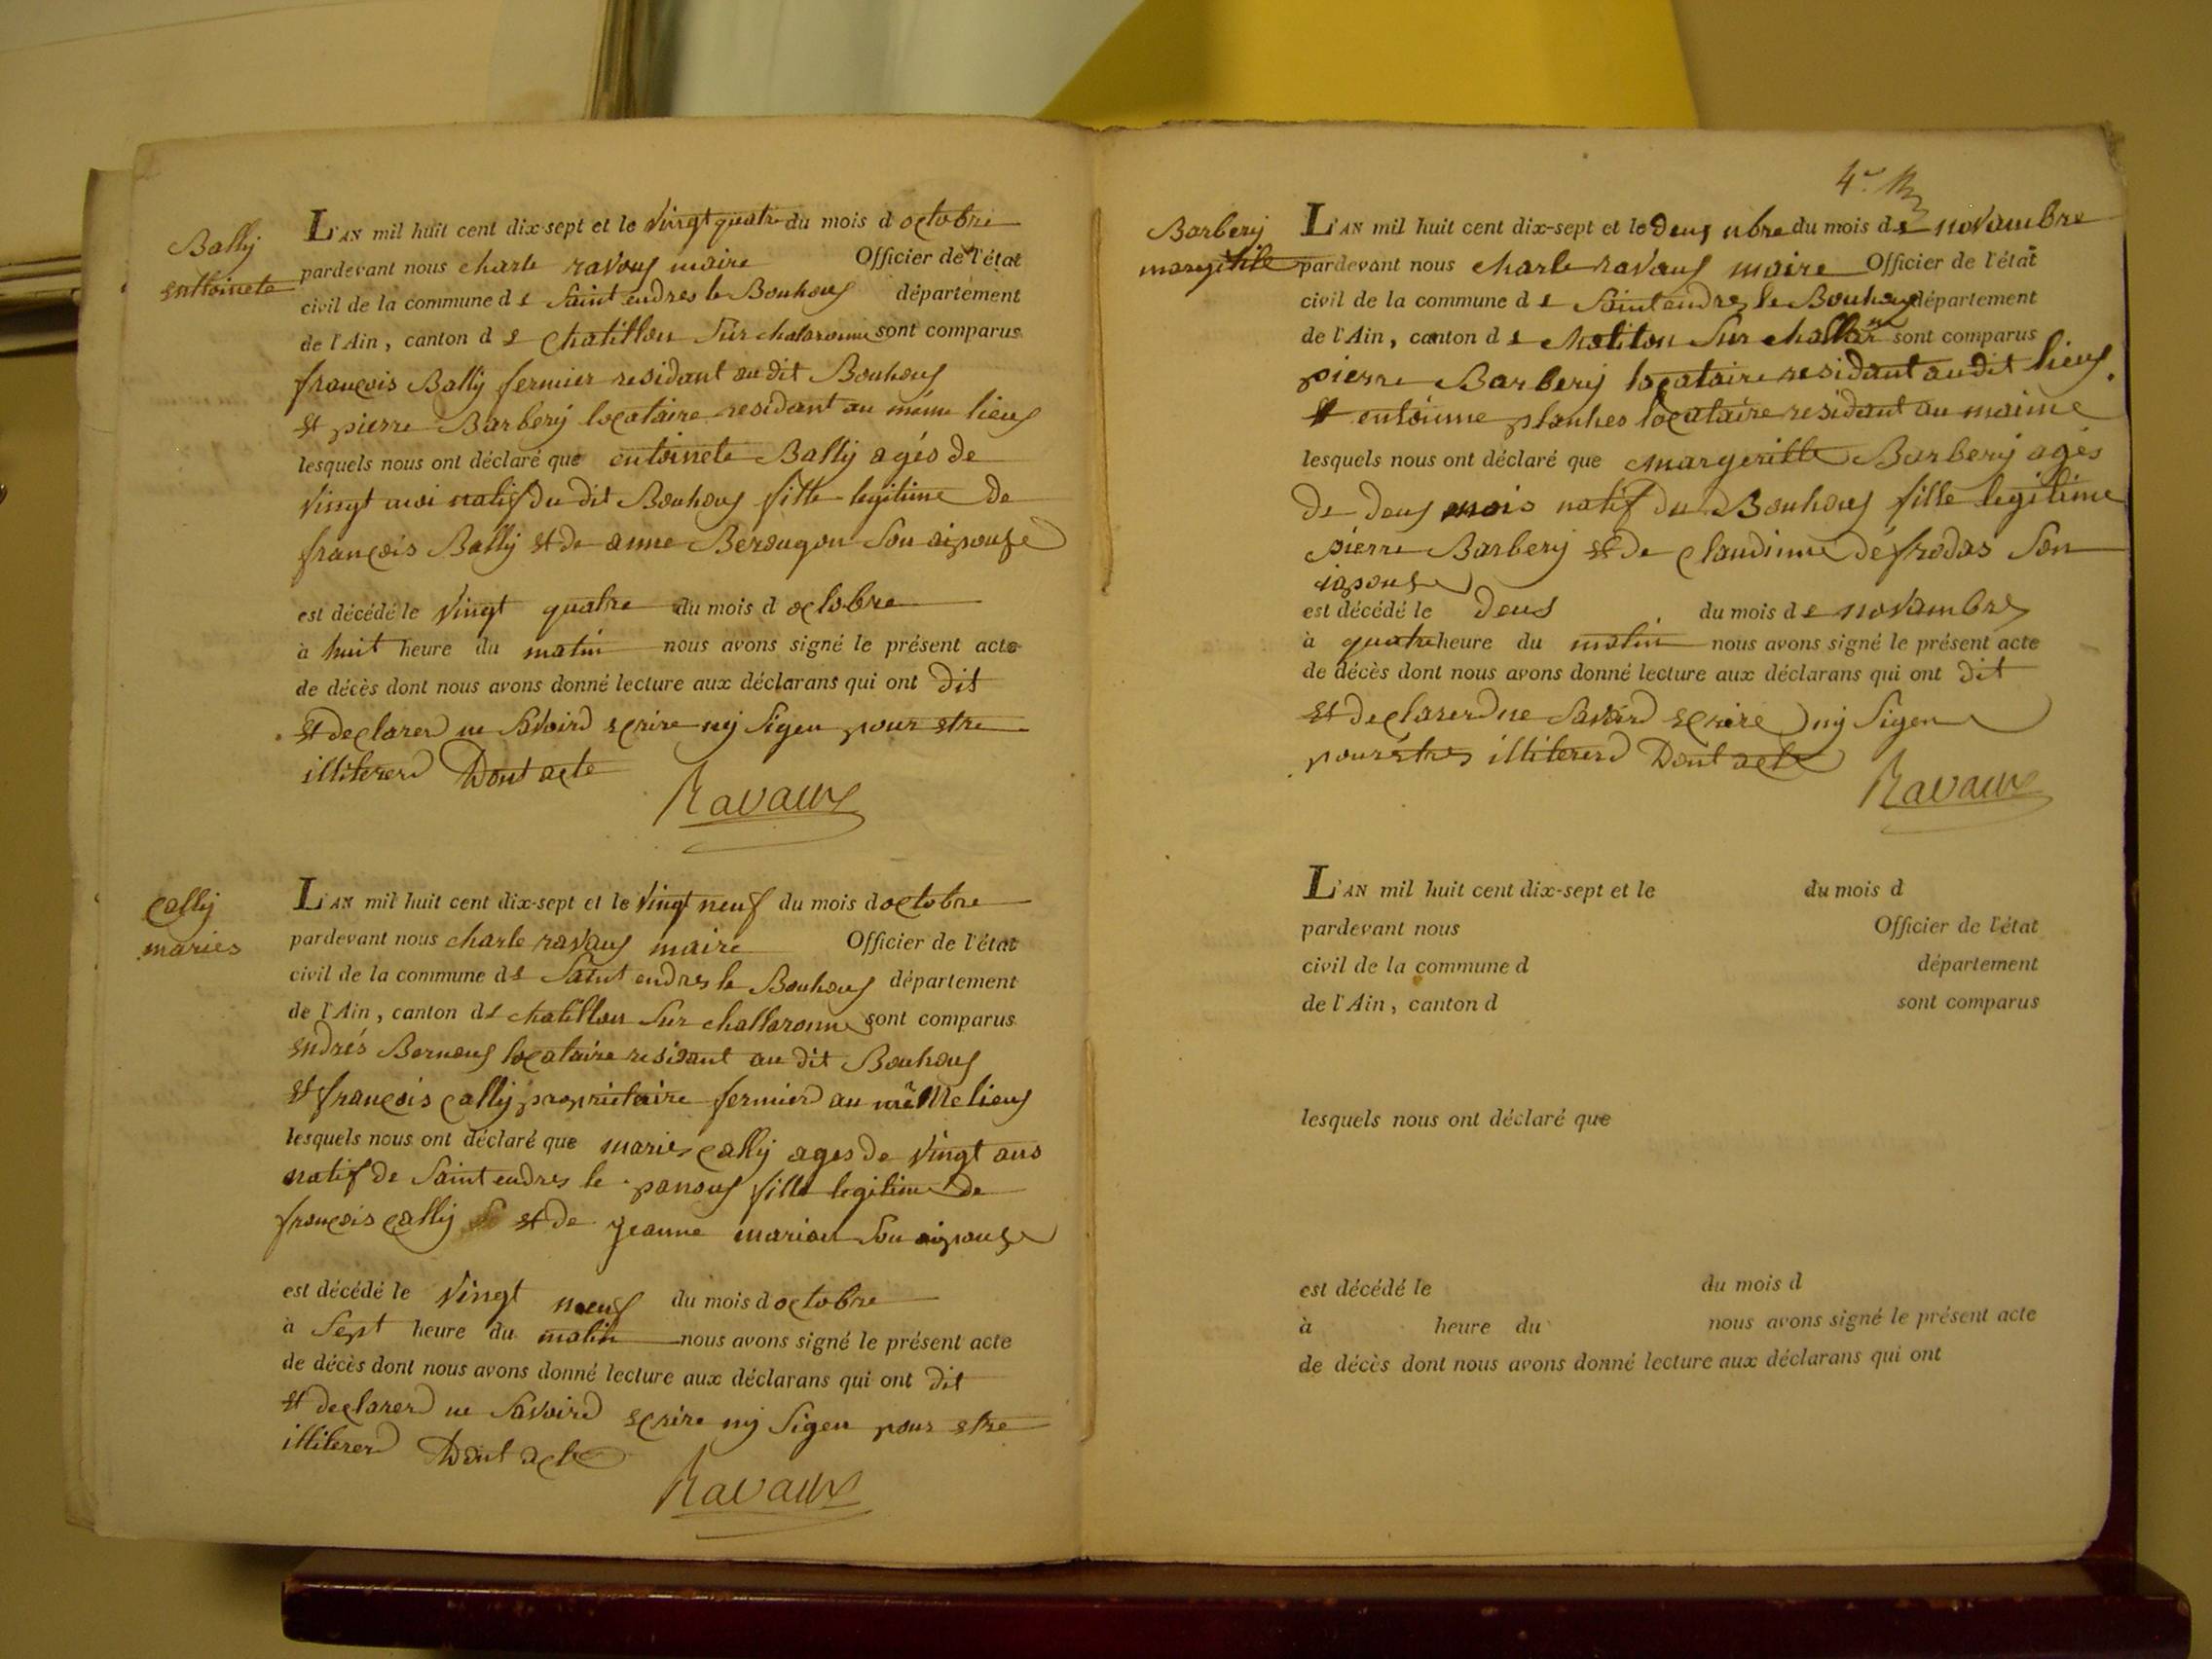 Bally
entoinete
L'AN mil huit cent dix-sept et le vingt quatre du mois d octobre
pardevant nous charle ravaux maire Officier de l'état
civil de la commune de Saint endres le Bouhoux département
de l'Ain, canton de chatillon sur chalaronne sont comparus
françois Bally fermier residant au dit Bouhoux
et pierre Barbery locataire residant au même lieux
lesquels nous ont déclaré que entoinete Bally agés de
vingt natif du dit Bouhoux fille legitime de
françois Bally et de anne Berougon son aipouse
est décédé le vingt quatre du mois d octobre
à huit heure du matin nous avons signé le présent acte
de décès dont nous avons donné lecture aux déclarans qui ont dit
et declarer ne savoird ecrire ny sigen pour etre
illiterer Dont acte
Ravaux
Cally
maries
L'AN mil huit cent dix-sept et le vingt neuf du mois d octobre
pardevant nous charle ravaux maire Officier de l'état
civil de la commune de Saint endres le Bouhoux département
de l'Ain, canton de chatillon sur challaronne sont comparus
endrés Bernoux locataire residant au dit Bouhoux
et françois Cally propriétaire fermier au même lieux
lesquels nous ont déclaré que maries Cally ages de vingt ans
natif de Saint endres le panoux fille legitime de
françois Cally et de jeanne marion son aipouse
est décédé le vingt neuf du mois d octobre
à Sept heure du matin nous avons signé le présent acte
de décès dont nous avons donné lecture aux déclarans qui ont dit
et declarer ne savoird ecrire ny sigen pour etre
illiterer Dont acte
Ravaux
4e
Barbery
margeritte
L'AN mil huit cent dix-sept et le deux du mois de novambre
pardevant nous charle ravaux maire Officier de l'état
civil de la commune de Saint endres le Bouhoux département
de l'Ain, canton de chatilon sur challar sont comparus
pierre Barbery locataire residant au dit lieux
et entoinne planhes locataire residant au maime
lesquels nous ont déclaré que margeritte Barbery agés
de deux mois natif du Bouhoux fille legitime
pierre Barbery et de claudinne défradas son
iapouse
est décédé le deux du mois de novambre
à quatre heure du matin nous avons signé le présent acte
de décès dont nous avons donné lecture aux déclarans qui ont dit
et declarerd ne savoird ecrire ny sigen
pour etres illitererd Dont acte
Ravaux
L'AN mil huit cent dix-sept et le du mois d
pardevant nous Officier de l'état
civil de la commune d département
de l'Ain, canton d sont comparus
lesquels nous ont déclaré que
est décédé le du mois d
à heure du nous avons signé le présent acte
de décès dont nous avons donné lecture aux déclarans qui ont